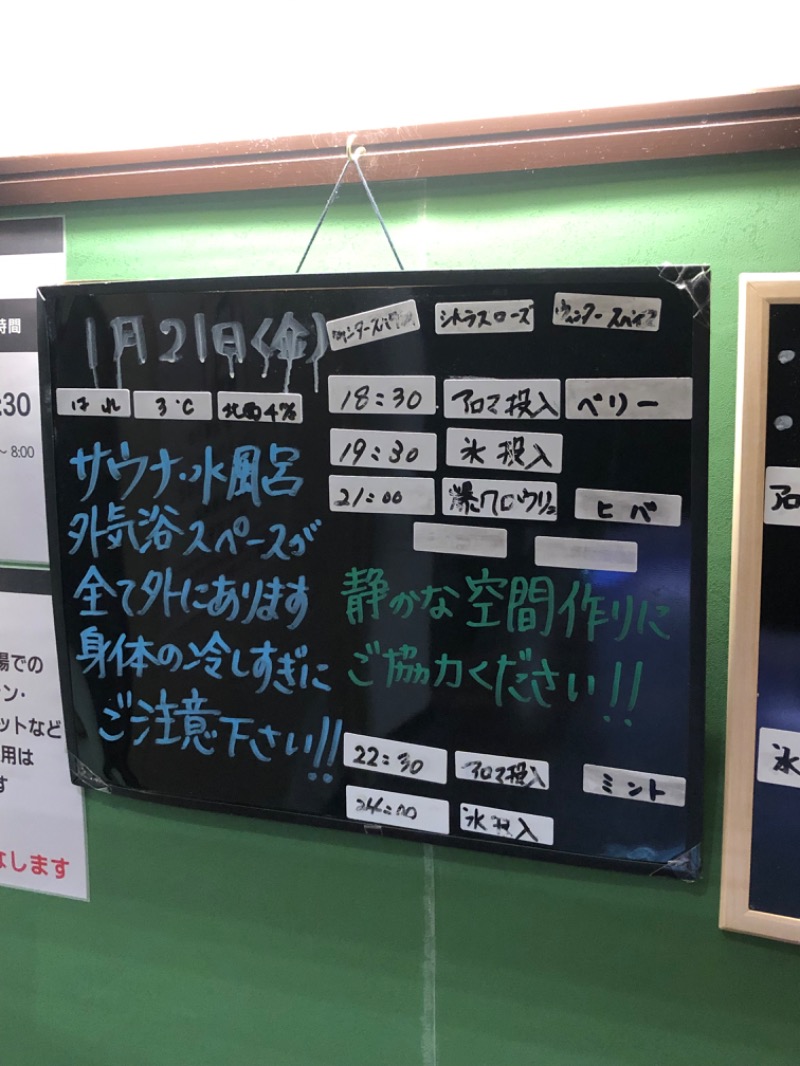 1月21日(金)
シトラスローズ
ウィンタースパイス
はれ 3℃
18:30 アロマ投入 ベリー
19:30 氷投入
21:00 爆アロウリュ ヒバ
サウナ・水風呂
外気浴スペースが
全て外にあります
身体の冷しすぎに
ご注意下さい!!
静かな空間作りに
ご協力ください!!
22:30 アロマ投入 ミント
24:00 氷投入
時間
:30
~8:00
場での
ン・
ットなど
用は
す
なします
アロ
氷